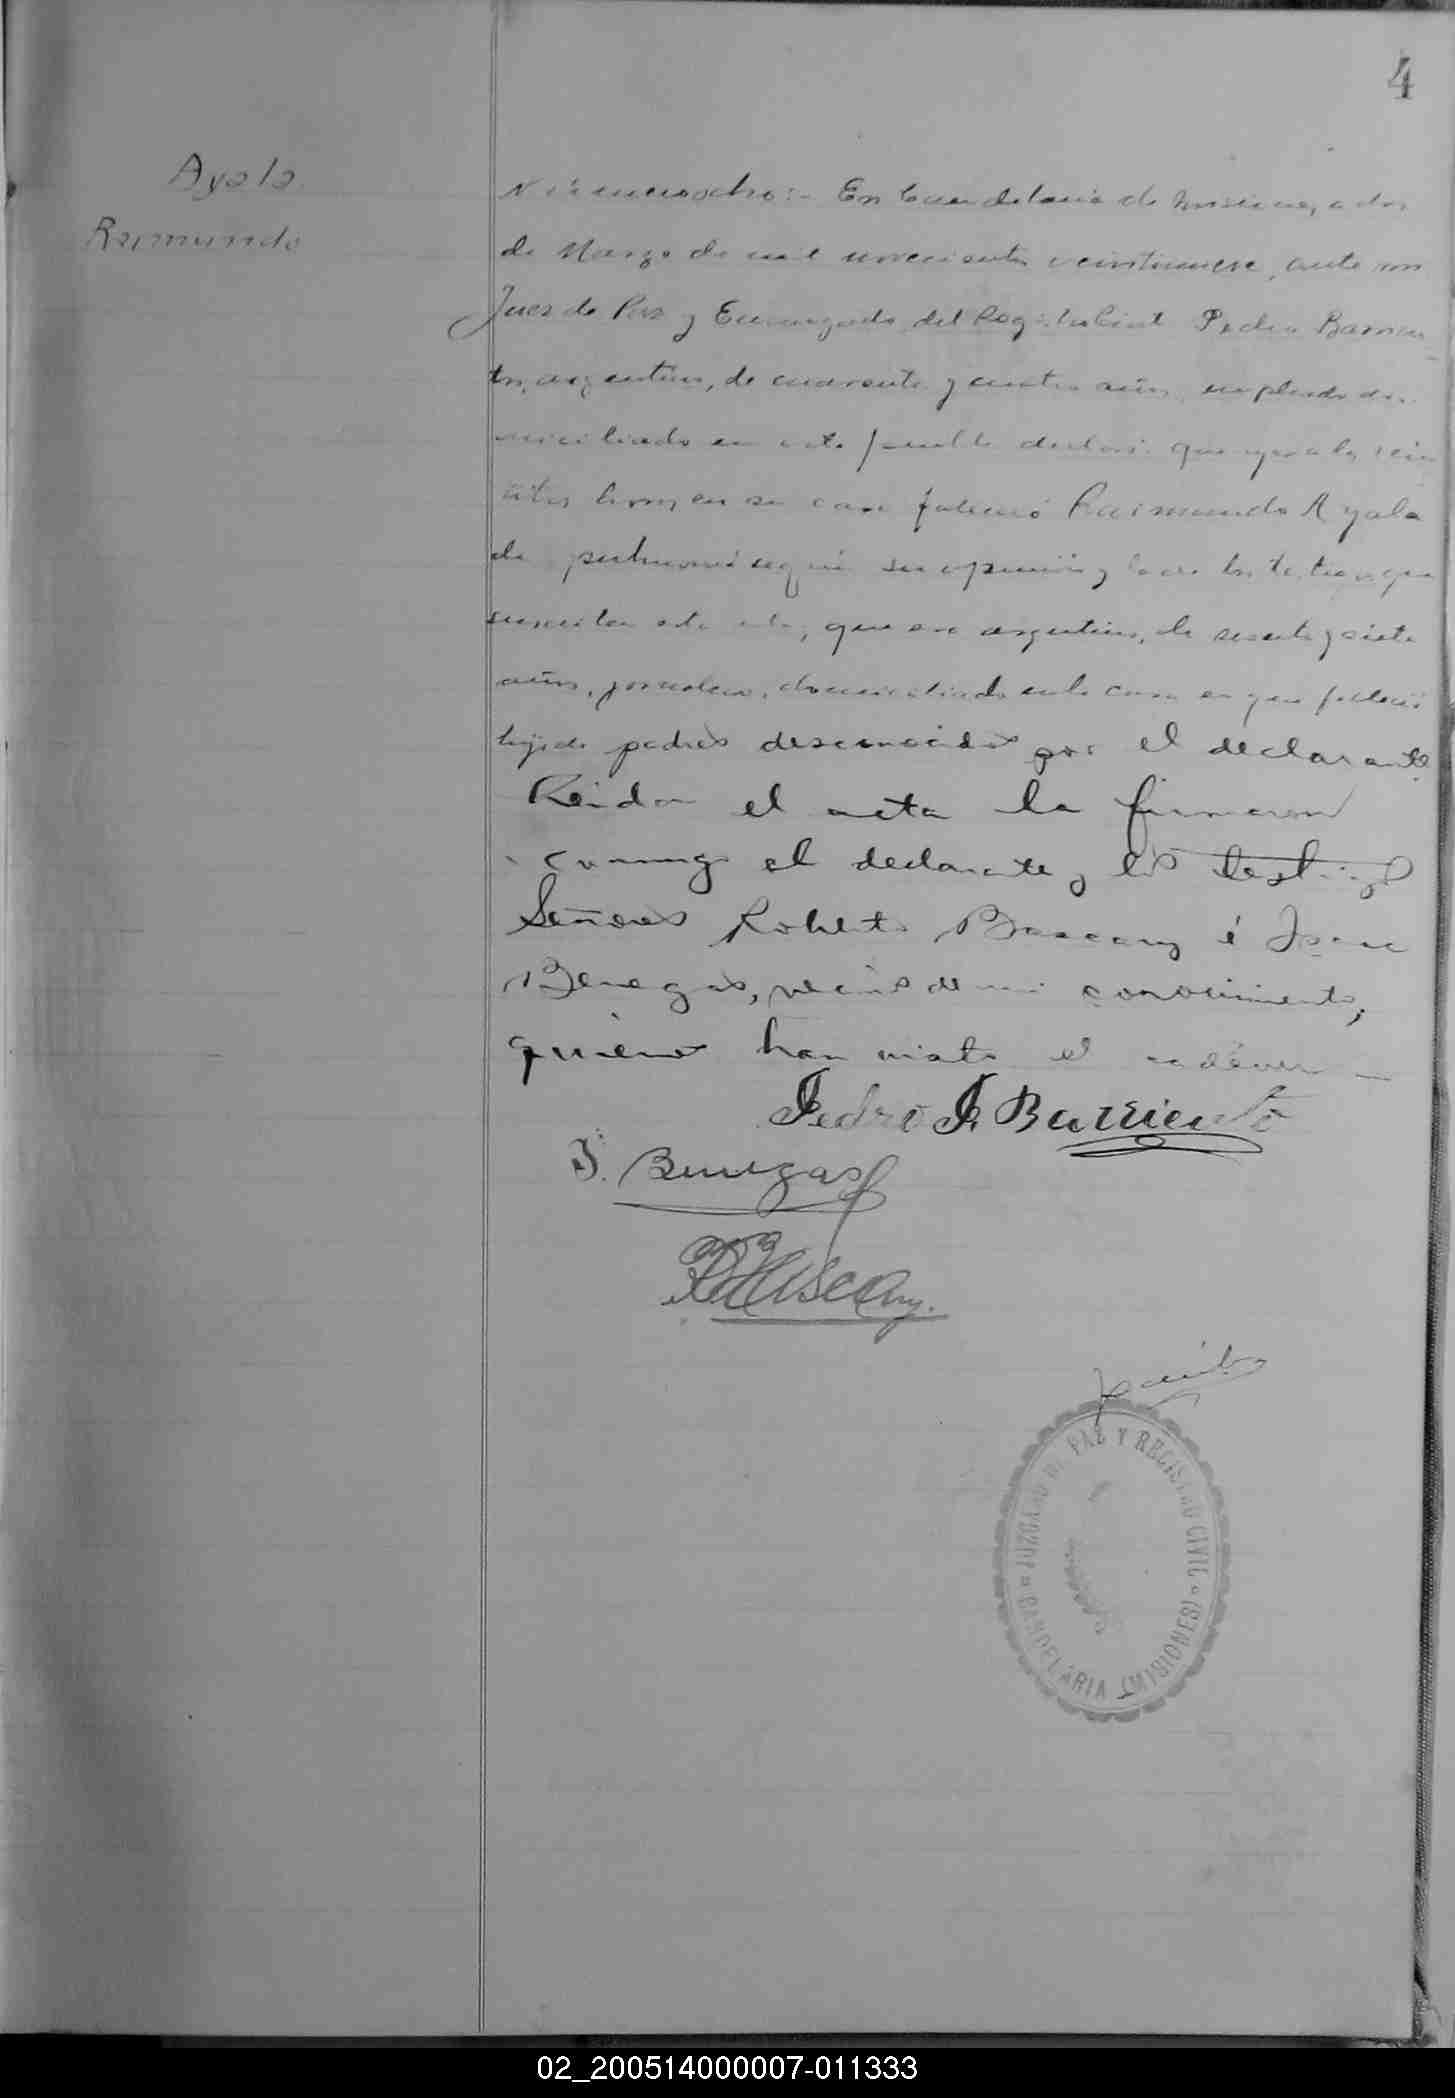 4
Ayala
Raimundo
Número ocho:- En Candelaria de Misiones, a dos
de Marzo de mil novecientos veintinueve, ante mi
Juez de Paz y Encargado del Registro Civil Pedro Barrien-
tos, argentino, de cuarenta y cuatro años, empleado do-
miciliado en este pueblo declaró: que ayer a las
horas en su casa falleció Raimundo Ayala
de pulmonía según su opinión y la de los testigos que
suscriben este acta, que era argentino, de sesenta y siete
años, jornalero, domiciliado en la casa en que falleció
hijo de padres desconocidos por el declarante
Leida el acta la firmaron
conmigo el declarante y los testigos
Señores Roberto Bascary é Isaac
Benegas, vecinos de mi conocimiento,
quienes han visto el cadáver —
Pedro J. Barriento
I. Benegas
R Bascary.
JUZGADO DE PAZ Y REGISTRO CIVIL
CANDELARIA (MISIONES)
02_200514000007-011333